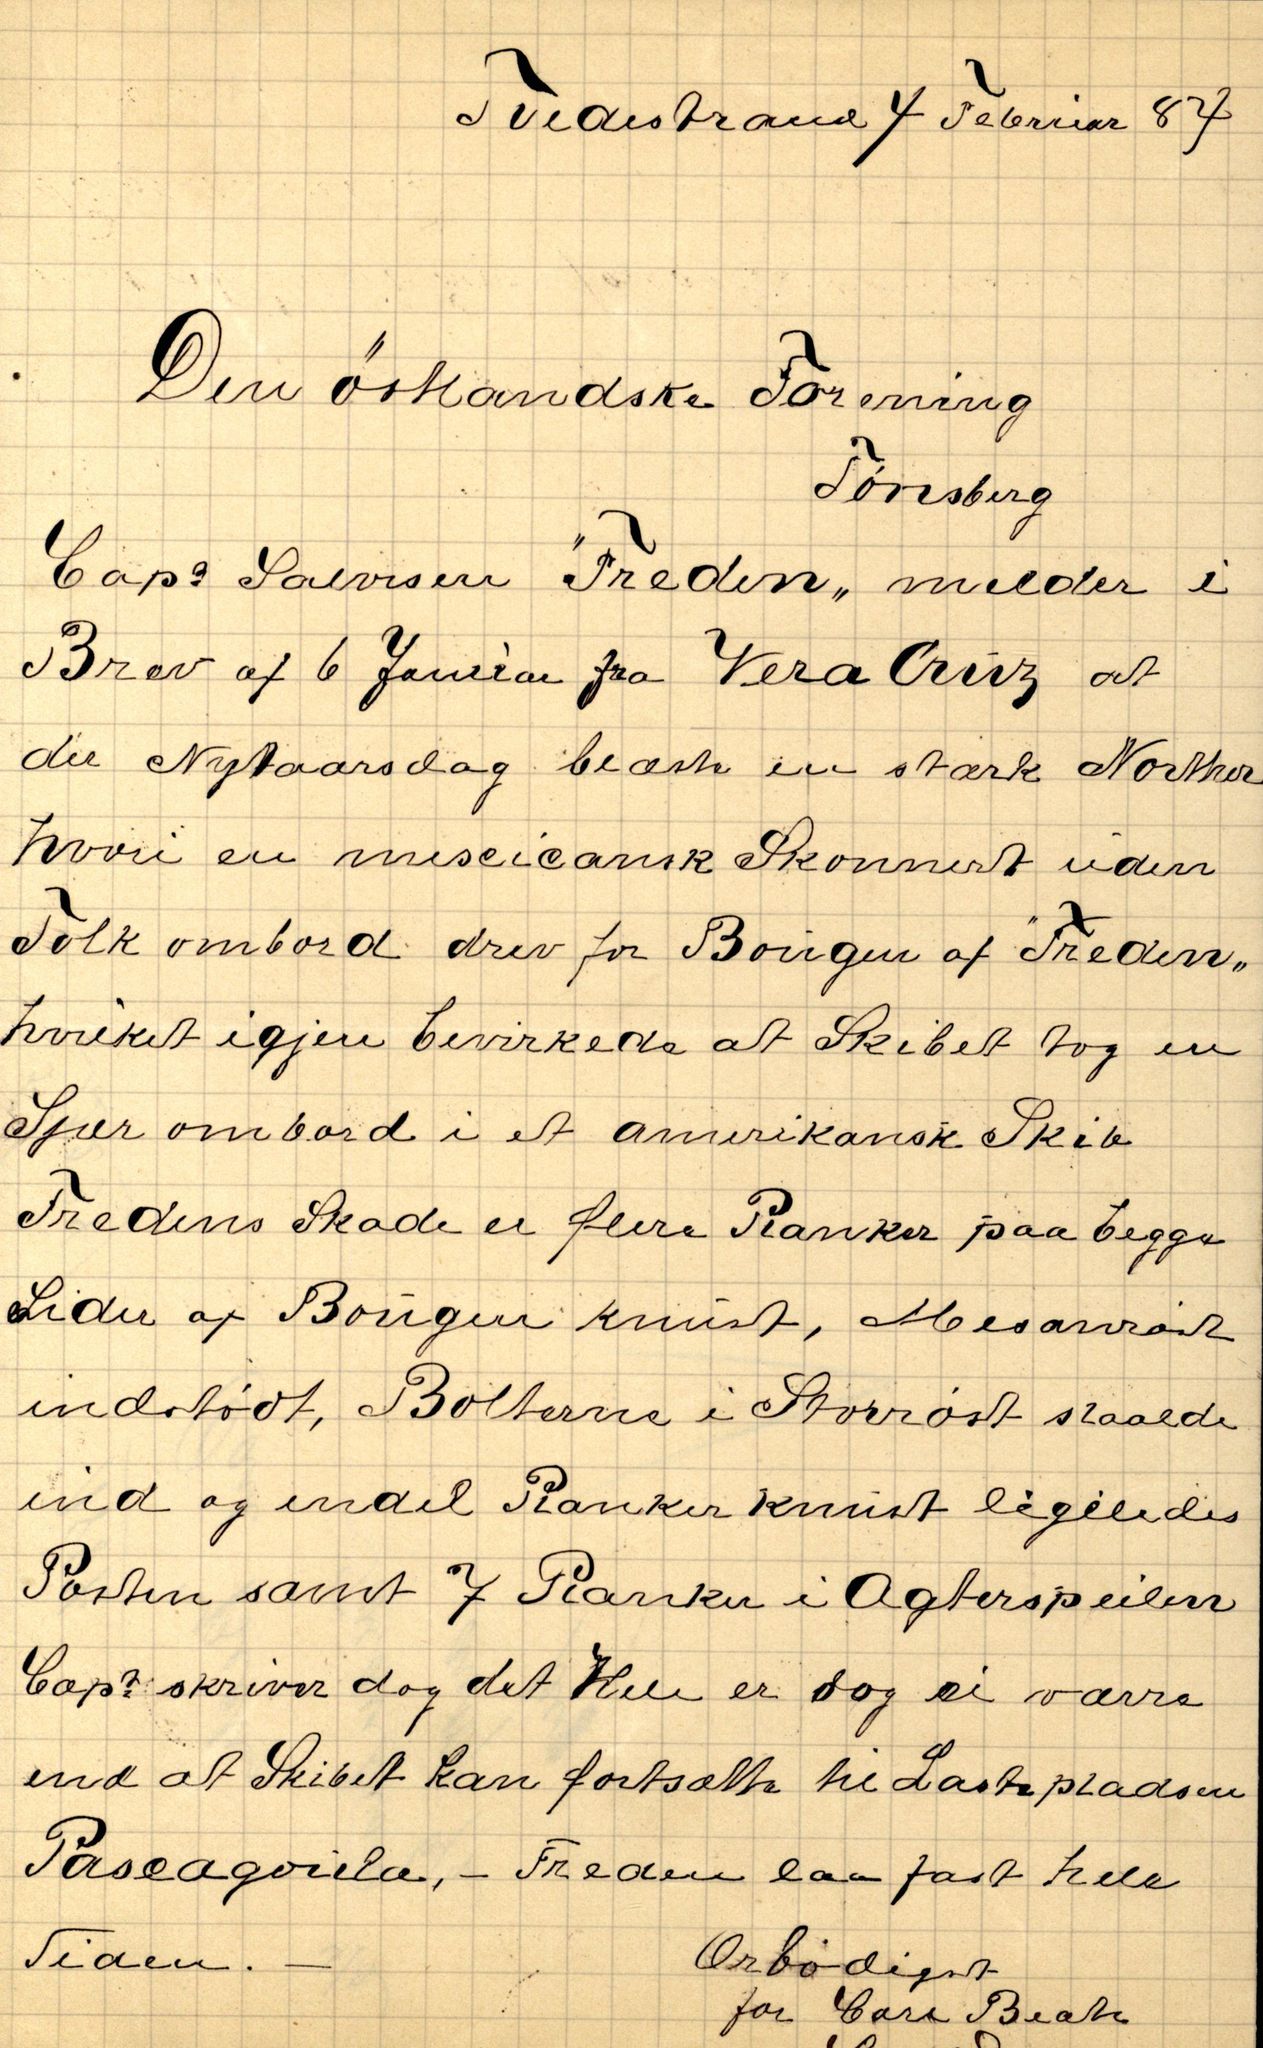 Tvedestrand 7 Februar 87
Den östlandske Forening
Tønsberg
Capt Salvesen "Freden„ melder i
Brev af 6 Januar fra Vera Cruz at
der Nytaarsdag blæste en stærk Norther
hvori en mexicansk Skonnert uden
Folk ombord drev for Bougen af "Freden„
hvilket igjen bevirkede at Skibet tog en
Sjær ombord i et amerikansk Skib
Fredens Skade er flere Planker paa begge
Sider af Bougen knust, Mesanrøst
indstødt, Bolterne i Storrøst staalde
ind og endel Planker knust ligeledes
Porten samt 7 Planker i Agterspeilen
Capt skriver dog det Hele er dog ei værre
end at Skibet kan fortsætte til Lastepladsen
Pascagoula, – Freden laa fast hele
Tiden. –
Ørbødigst
for Carl Beate